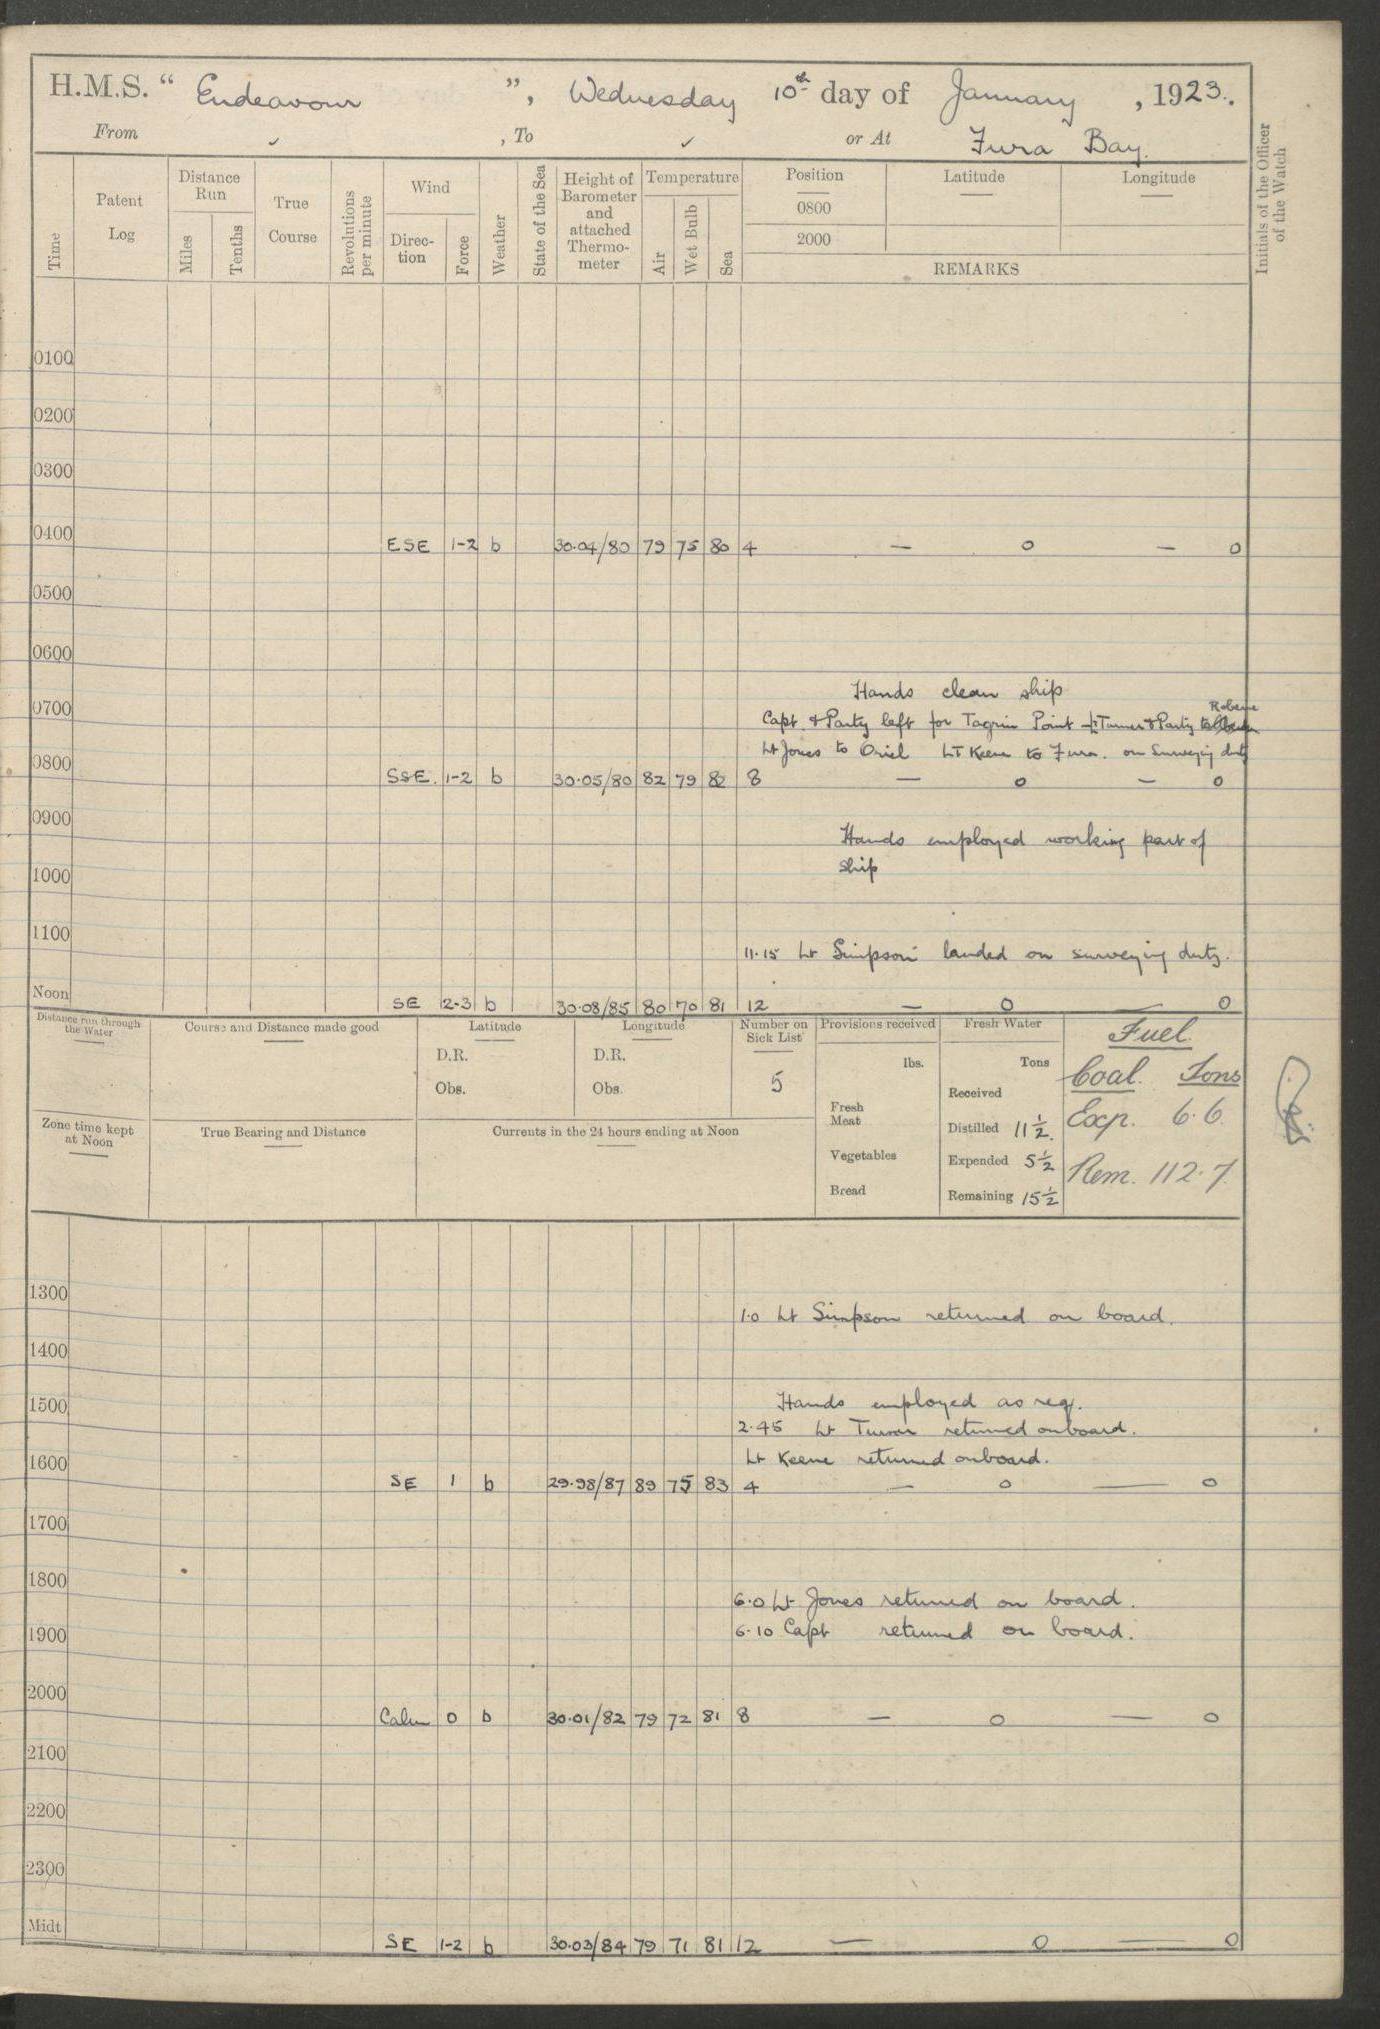 H.M.S. “ Endeavour ”, Wednesday 10th day of January, 1923.
From ✓ , To ✓ or At Fura Bay.
Initials of the Officer of the Watch
Time
Patent Log
Distance Run
Miles
Tenths
True Course
Revolutions per minute
Wind
Direc-tion
Force
Weather
State of the Sea
Height of Barometer and attached Thermo-meter
Temperature
Air
Wet Bulb
Sea
Position
0800
2000
Latitude
Longitude
REMARKS
0100
0200
0300
0400
ESE 1-2 b 30.04/80 79 75 80 4 — o — o
0500
0600
Hands clean ship
0700
Robene
Capt & Party left for Tagrin Point Lt Turner & Party to
Lt Jones to Oriel Lt Keene to Fura. on Surveying duty
0800
SSE. 1-2 b 30.05/80 82 79 82 8 — o — o
0900
Hands employed working part of
ship
1000
1100
11.15 Lt Simpson landed on surveying duty.
Noon
SE 2-3 b 30.08/85 80 70 81 12 — o — o
Distance run through the Water
Course and Distance made good
Latitude
D.R.
Obs.
Longitude
D.R.
Obs.
Number on Sick List
5
Provisions received
lbs.
Fresh Meat
Vegetables
Bread
Fresh Water
Tons
Received
Distilled 11½.
Expended 5½
Remaining 15½
Fuel
Coal. Tons
Exp. 6.6.
Rem. 112.7.
Zone time kept at Noon
True Bearing and Distance
Currents in the 24 hours ending at Noon
1300
1.0 Lt Simpson returned on board.
1400
1500
Hands employed as req.
2.45 Lt Turner returned onboard.
1600
Lt Keene returned onboard.
SE 1 b 29.98/87 89 75 83 4 — o — o
1700
1800
6.0 Lt Jones returned on board.
1900
6.10 Capt returned on board.
2000
Calm 0 b 30.01/82 79 72 81 8 — o — o
2100
2200
2300
Midt
SE 1-2 b 30.03/84 79 71 81 12 — o — o